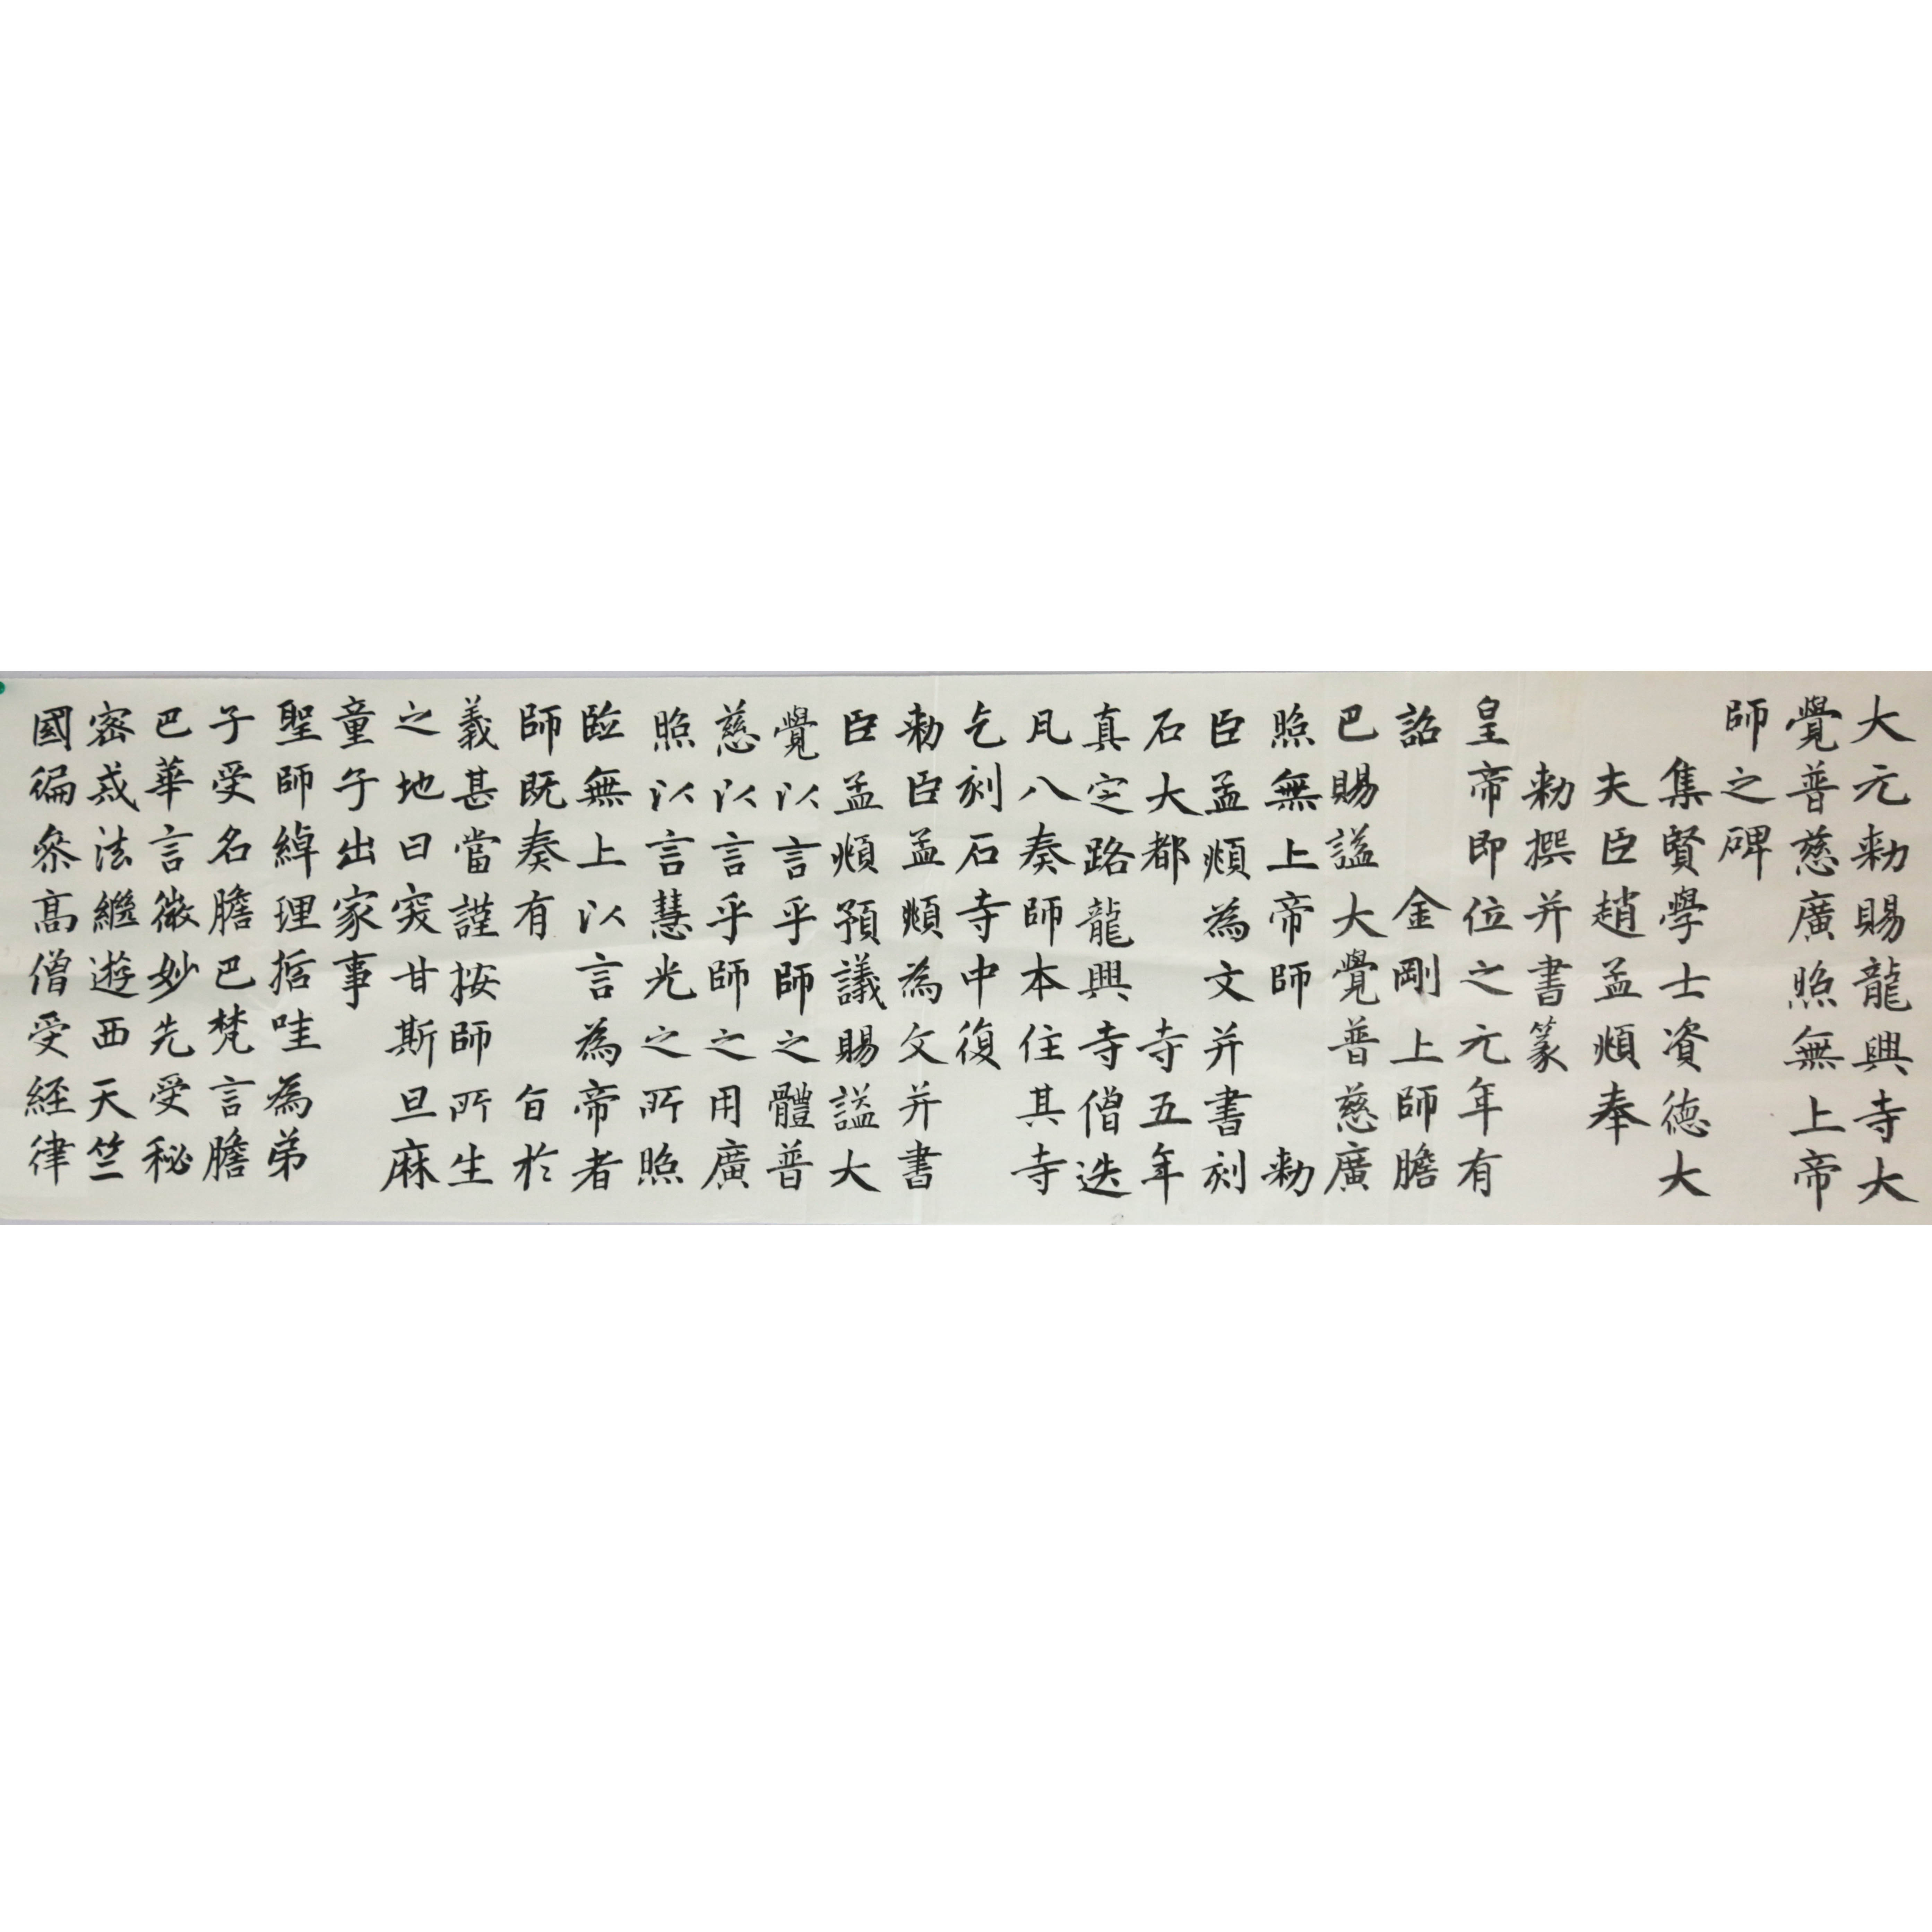 大元勅賜龍興寺大
覺普慈廣照無上帝
師之碑
集賢學士資德大
夫臣趙孟頫奉
勅撰并書篆
皇帝即位之元年有
詔金剛上師膽
巴賜謚大覺普慈廣
照無上帝師勅
臣孟頫為文并書刻
石大都寺五年
真定路龍興寺僧迭
凡八奏師本住其寺
乞刻石寺中復
勅臣孟頫為文并書
臣孟頫預議賜謚大
覺以言乎師之體普
慈以言乎師之用廣
照以言慧光之所照
臨無上以言為帝者
師既奏有旨於
義甚當謹按師所生
之地曰突甘斯旦麻
童子出家事
聖師綽理哲哇為弟
子受名膽巴梵言膽
巴華言微妙先受秘
密戒法繼遊西天竺
國徧參高僧受經律